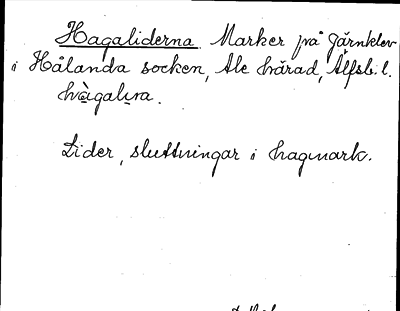 Hagaliderna Marker på Gärnklev
i Hålanda socken, Ale härad, Älfsb. l.
hàgalıra.
Lider, sluttningar i hagmark.